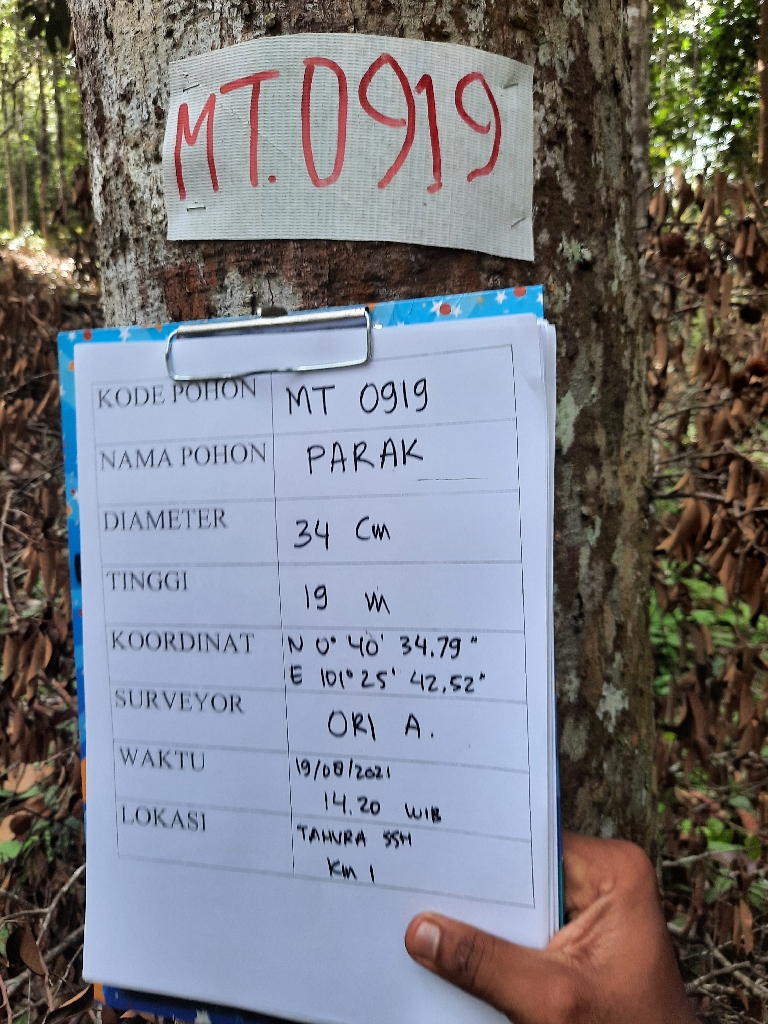 MT.0919
KODE POHON MT 0919
NAMA POHON PARAK
DIAMETER 34 Cm
TINGGI 19 m
KOORDINAT N 0° 40' 34.79"
E 101° 25' 42.52"
SURVEYOR ORI A.
WAKTU 19/08/2021
14.20 WIB
LOKASI TAHURA SSH
Km 1